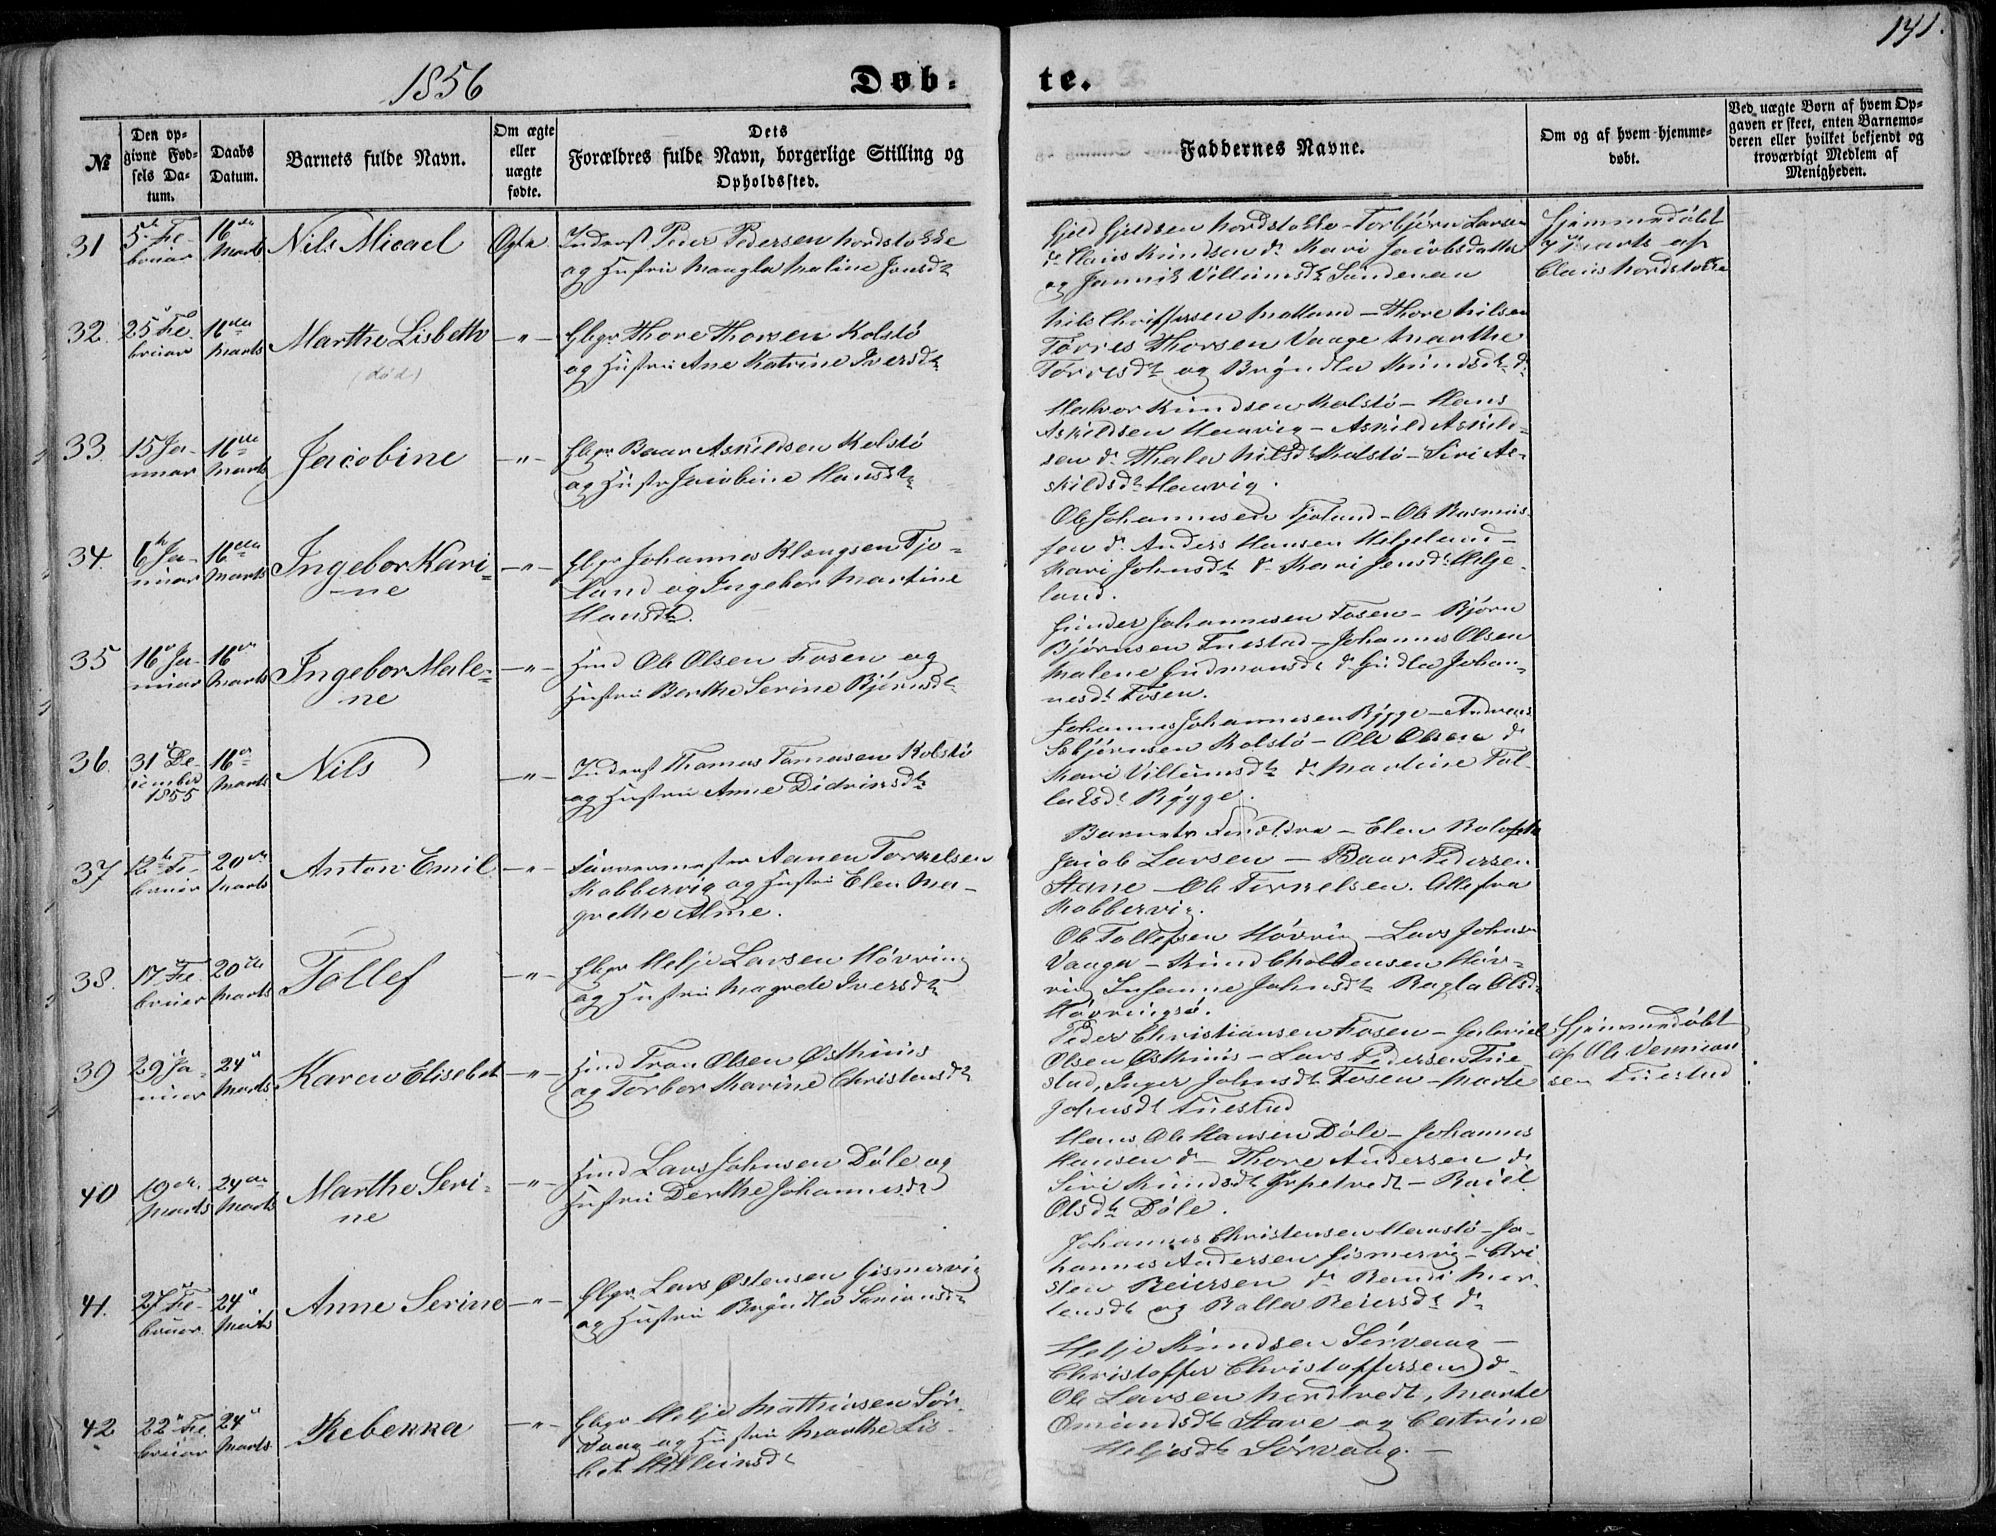 141.
1856
Døb-
te.
№
Den op-
givne Fød-
sels Da-
tum.
Daabs
Datum.
Barnets fulde Navn.
Om ægte
eller
uægte
fødte.
Dets
Forældres fulde Navn, borgerlige Stilling og
Opholdssted.
Faddernes Navne.
Om og af hvem hjemme-
døbt.
Ved uægte Børn af hvem Op-
gaven er skeet, enten Barnemo-
deren eller hvilket bekjendt og
troværdigt Medlem af
Menigheden.
31
5te Fe-
bruar
16de
Marts
Nils Micael
Ægte
Inderst Peder Pedersen Nordstokke
og Hustru Malene Jensdt
Gjeld Gjeldsen Nordstokke - Torbjørn Larsen
do Claus Knudsen do Kari Jacobsdatter
og Villumsdt Sundenan
Hjemmedøbt
7 Marts af
Claus Nordstokke
32.
25 Fe
bruar
16de
Marts
Marthe Lisbeth
(død)
-"-
Gbgr Thore Thorsen Kolstø
og Hustru Ane Katrine Iversdt
Nils Christensen Matland - Thore Nilsen
Tørres Thorsen Vaage Marthe
Tørresdt og Bryndla Knudsdt do
33
15 Ja-
nuar
16de
Marts
Jacobine
-"-
Gbgr Baar Askildsen Kolstø
og Hustr Jacobine Hansdt
Halvor Knudsen Kolstø - Hans
Askildsen Haavig - Askild Askild-
sen do Thala Nilsdt Kolstø - Siri As-
kildsdt Haavig.
34.
6te Ja-
nuar
16de
Marts
Ingebor Kari-
ne
-"-
Gbgr Johannes Klongsen Tjo-
land og Ingebor Martine
Hansdt.
Ole Johannesen Tjoland - Ole Rasmus-
sen do Anders Hansen Helgeland -
Kari Johnsdt do Kari Jensdt Helge-
land.
35
16 Ja-
nuar
16de
Marts
Ingebor Male-
ne
-"-
Hmd Ole Olsen Fosen og
Hustru Berthe Serine Bjørnsdt
Gunder Johannesen Fosen - Bjørn
Bjørnsen Fuestad - Johannes Olsen
Malene Gudmundsdt do Gudla Johan-
nesdt Fosen.
36.
31 De-
cember
1855
16de
Marts
Nils
-"-
Inderst Thomas Tomasen Kolstø
og Hustru Anne Didriksdt
Johannes Johannesen Rygge - Andreas
Sebjørnsen Kolstø - Ole Olsen do
Kari Villumsdt do Martine Tol-
lefsdt Rygge.
37
12te Fe-
bruar
20de
Marts
Anton Emil
-"-
Farvermester Aanen Torkelsen
Kobbervig og Hustru Elen Ma-
grethe Alme.
Barnets Forældre - Elen
Jacob Larsen - Baar Pedersen
Stane - Ole Torkelsen. Alle fra
Kobbervig.
38.
17 Fe
bruar
20de
Marts
Tollef
-"-
Gbgr Helje Larsen Høvring
og Hustru Magrete Iversdt
Ole Tollefsen Høvring - Lars Johnsen
Vaage - Knud Høv-
ring Susanne Johnsdt Ragla Olsdt
Høvringsø.
39
29 Ja-
nuar
24
Marts
Karen Elisebet
-"-
Hmd Tron Olsen Østhuus
og Torbor Karine Christensdt
Peder Christiansen Fosen - Gabriel
Olsen Østhuus - Lars Pedersen Fue
stad, Inger Johnsdt Fosen - Marte
Johnsdt Fuestad
Hjemmedøbt
af Ole
sen Fuestad
40
19de
Marts
24de
Marts
Marthe Seri-
ne
-"-
Hmd Lars Johnsen Døle og
Hustru Berthe Johannesdt
Hans Ole Hansen Døle - Johannes
Hansen do - Thore Andersen do
Siri Knudsdt - Rakel
Olsdt Døle.
41.
27 Fe-
bruar
24
Marts
Anne Serine
-"-
Gbgr Lars Østensen Gismervig
og Hustru Bryndla Simonsdt
Johannes Christensen Haustø - Jo-
hannes Andersen Gismervig - Cri
sten Reiersen do Randi Mor-
tensdt og Balla Reiersdt do
42
22 Fe
bruar
24
Marts
Rebekka
-"-
Gbgr Helje Mathiasen Sør-
vaag og Hustru Marthe Lis-
bet Villumsdt
Helje Knudsen Sørvaag -
Christoffer Christoffersen do -
Ole Larsen Nordtvedt, Marte
Omundsdt Stave og Catrine
Heljesdt Sørvaag. -